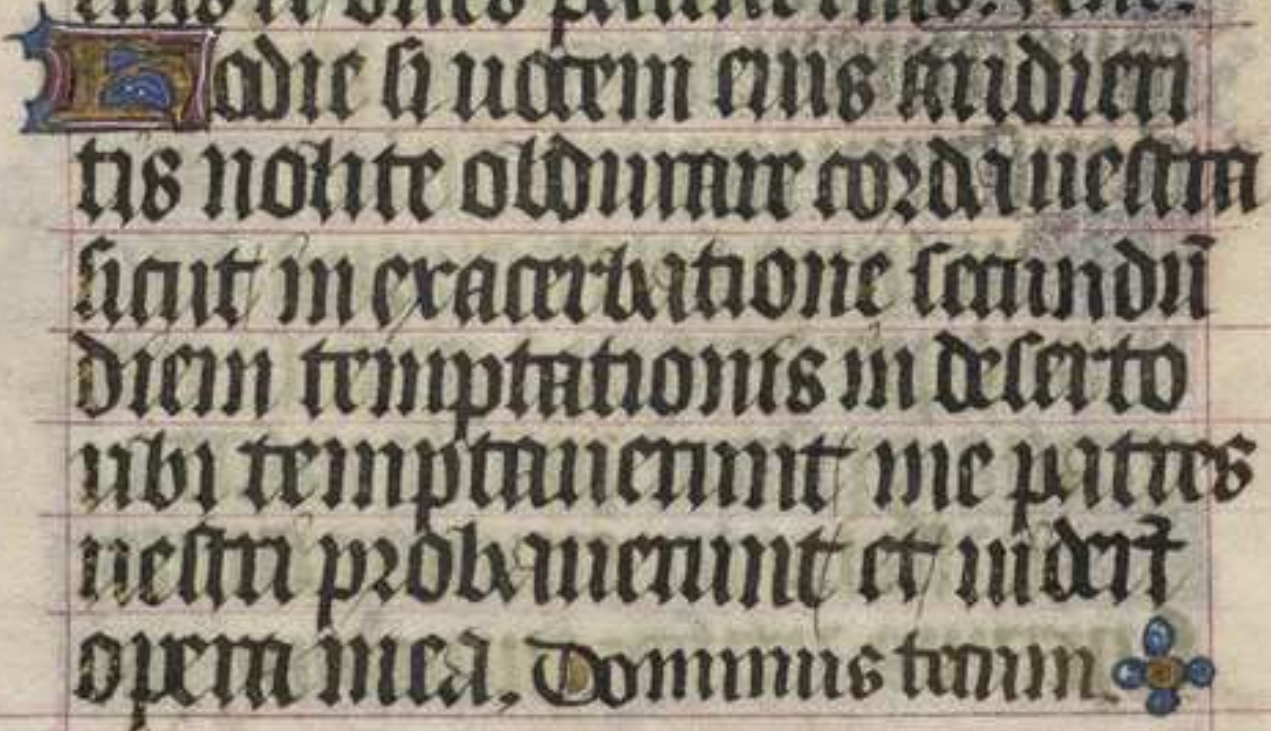 Hodie si uocem eius audieri
tis nolite obdurare corda uestra
sicut in exacerbatione secundū
diem temptationis in deserto
ubi temptauerunt me patres
uestri probauerunt et uider̄t
opera mea. Dominus tecum.